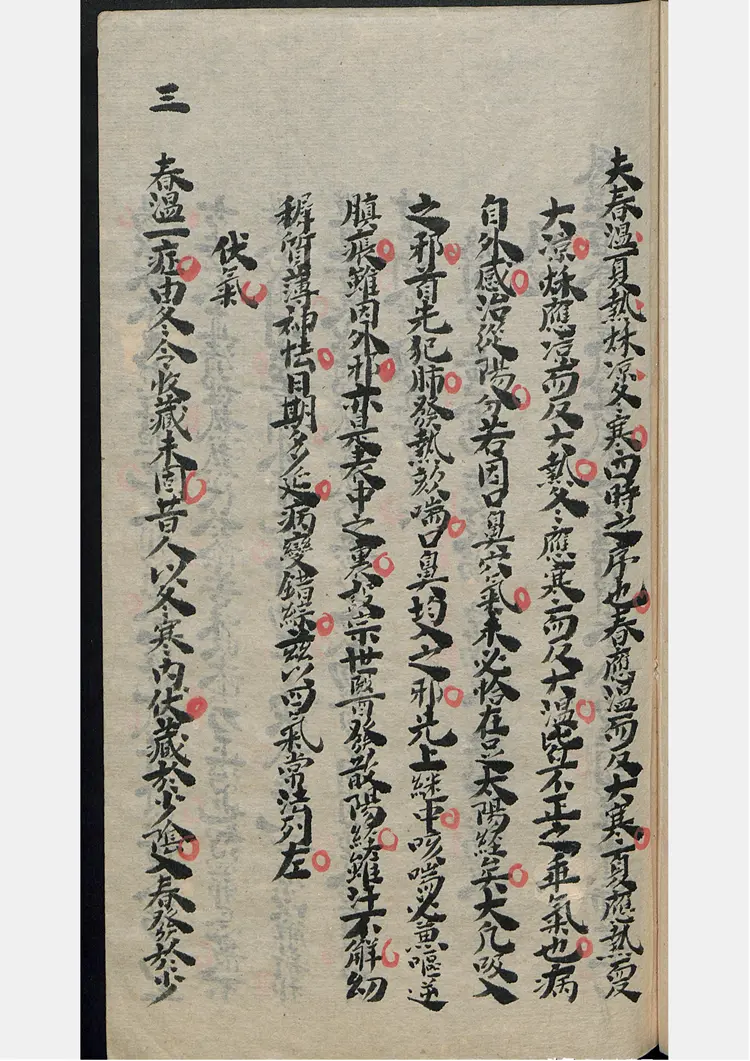 夫春溫夏熱秋凉冬寒四時之序也春應溫而反大寒夏應熱而反
大凉秋應凉而反大熱冬應寒而反大溫皆不正之乖氣也病
自外感治從陽分若因口鼻受氣未必恰在足太陽經矣大凡吸入
之邪首先犯肺發熱欬喘口鼻均入之邪先上継中咳喘必兼嘔逆
䐜脹雖因外邪亦是表中之裏設宗世醫發散陽經雖汗不解幼
穉質薄神怯日期多延病變錯綜茲以四氣常法列左
伏氣
三 春溫一症由冬令收藏未固昔人以冬寒內伏藏於少陰入春發於少